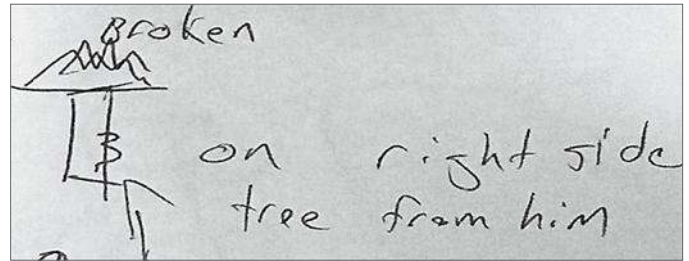 Broken
B on right side
tree from him